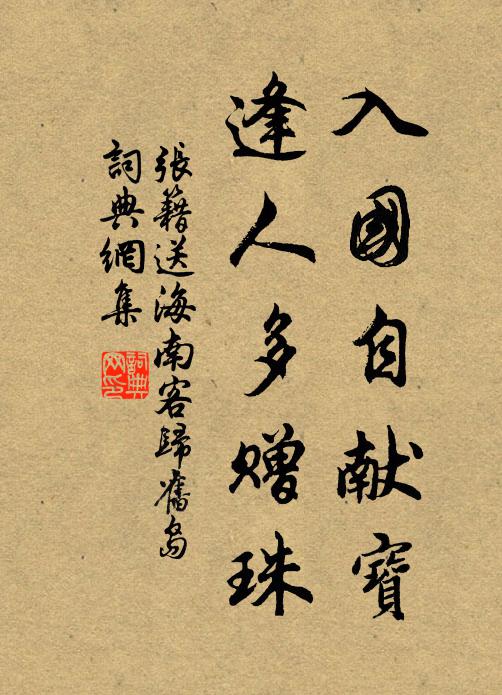 入國自献寶
逢人多赠珠
張籍送海南客歸舊島
詞典網集
詞典
网印